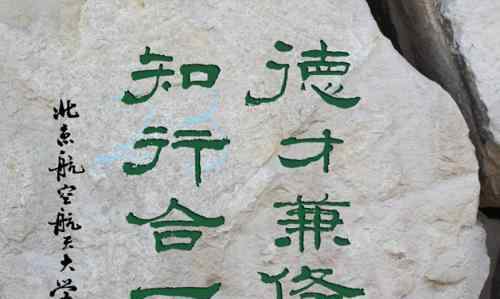 德才兼修
知行合一
北京航空航天大学